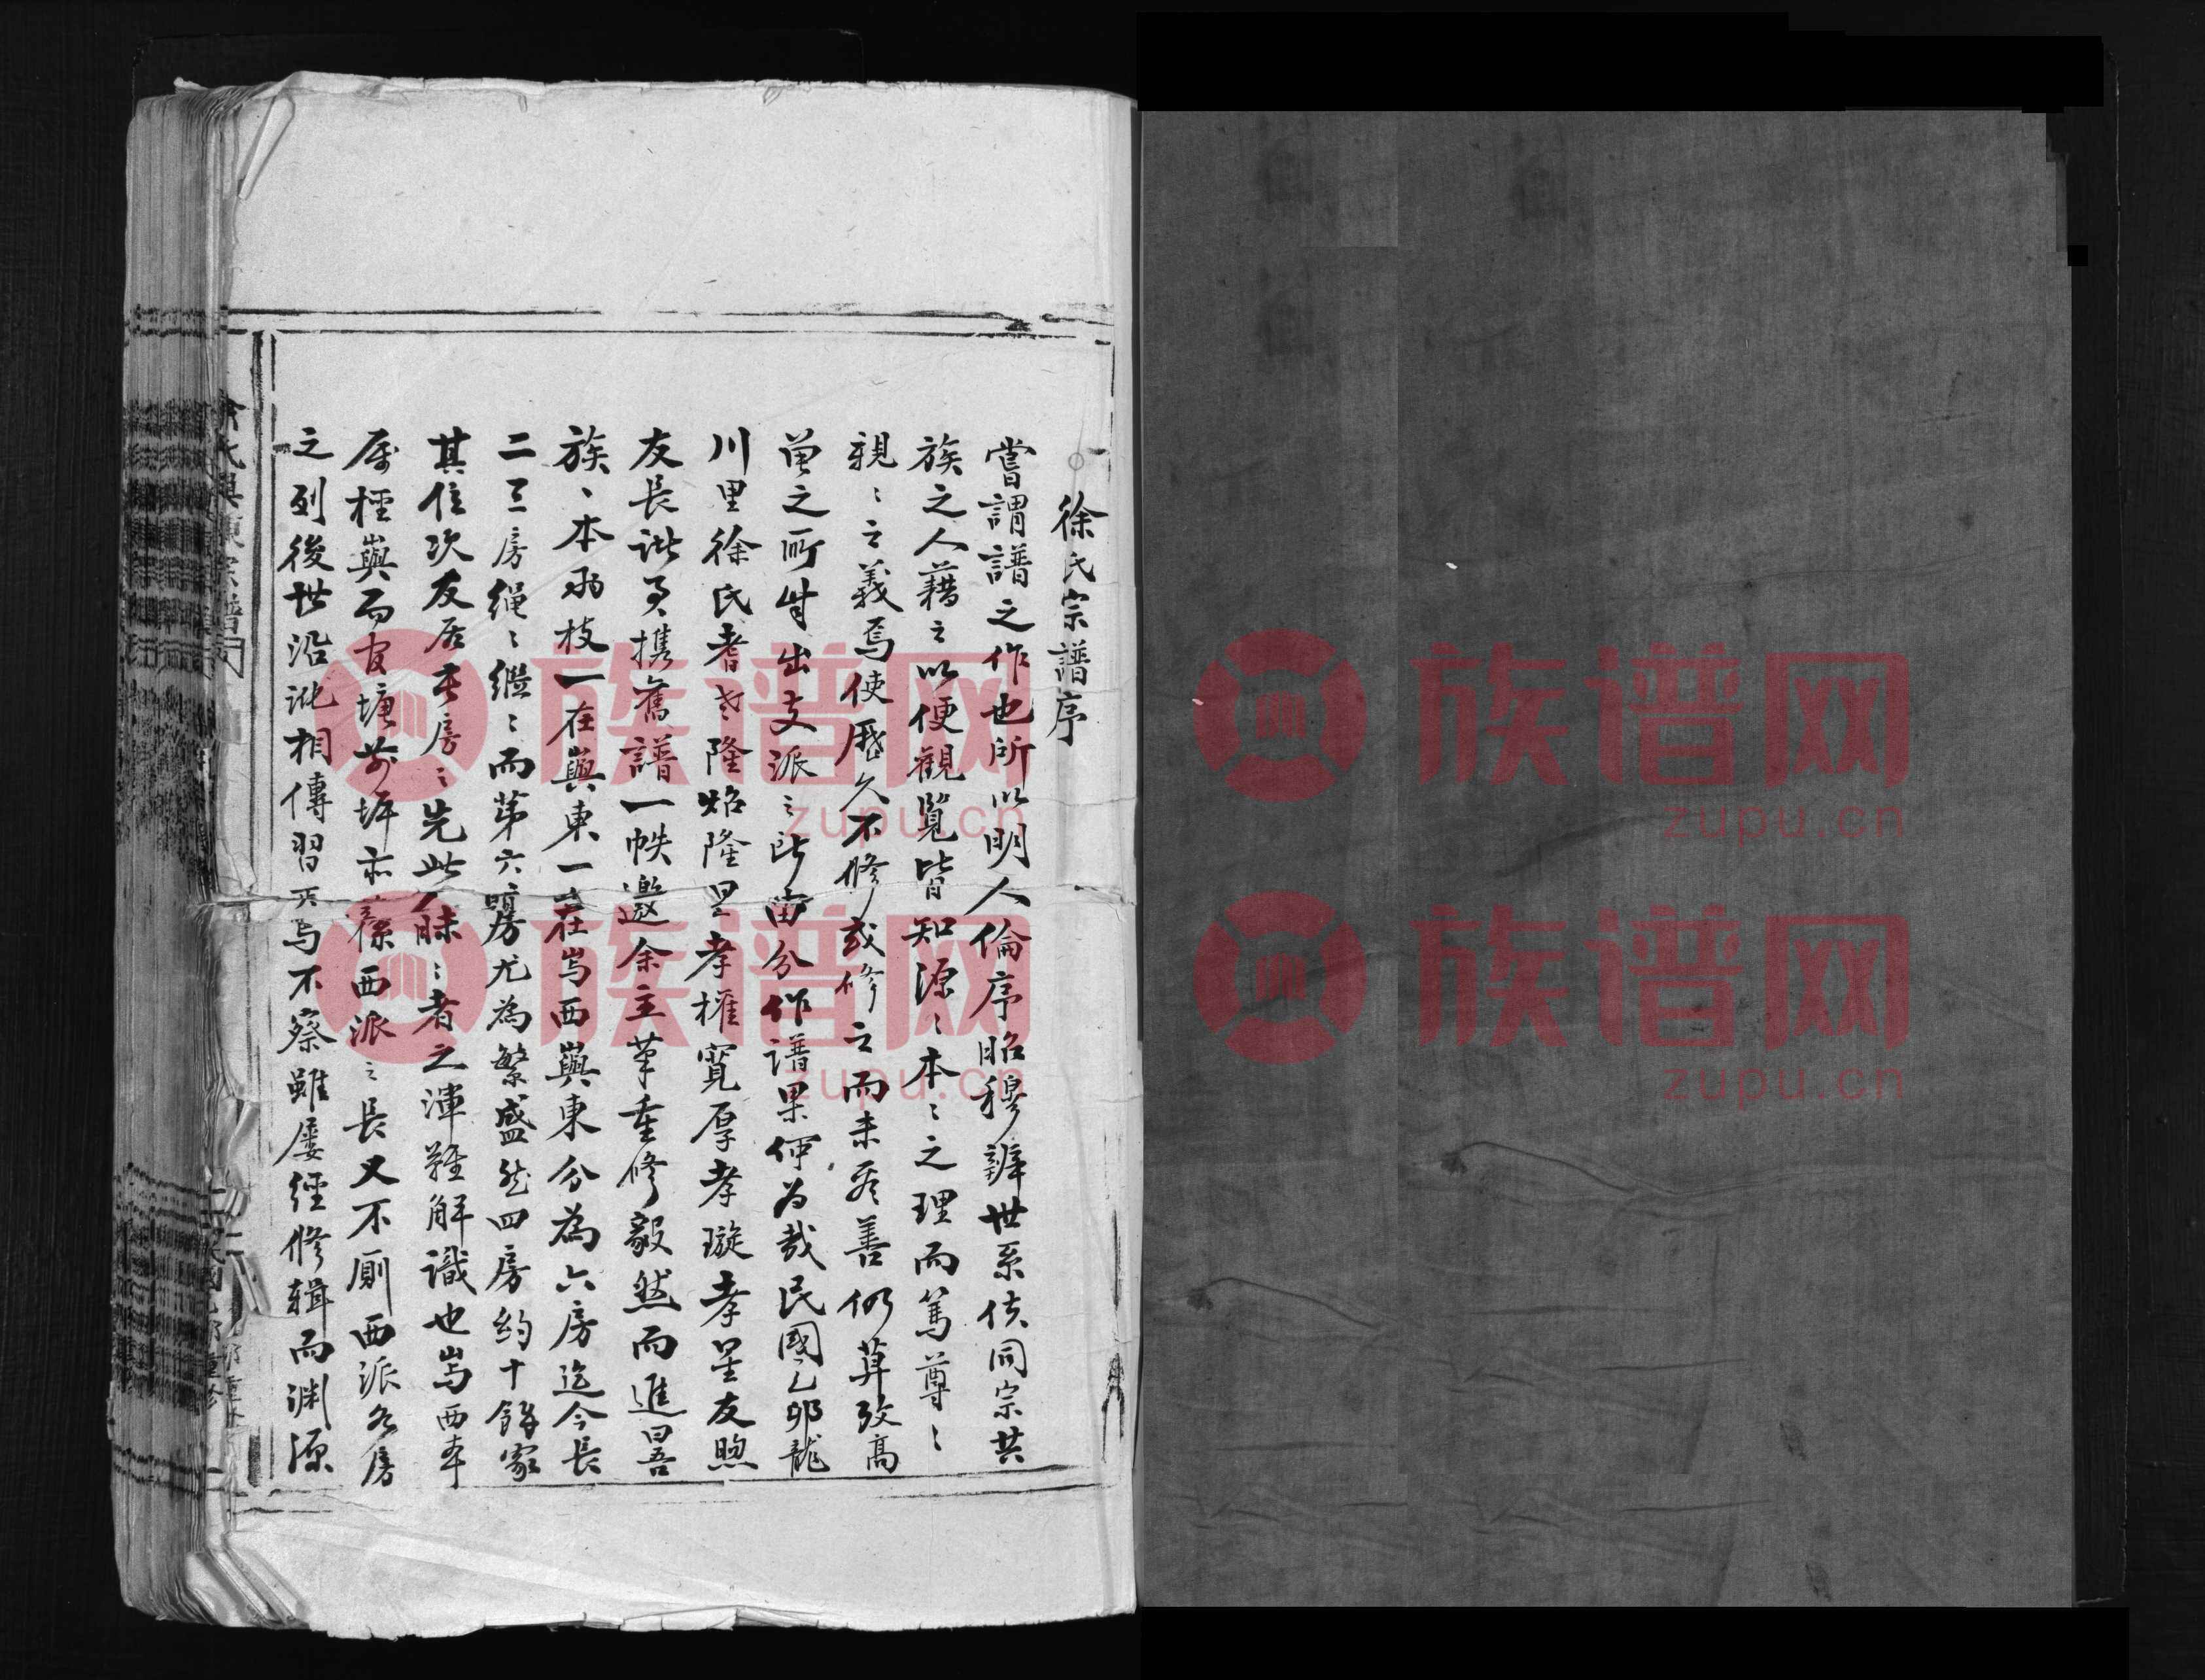 徐氏宗譜序
嘗謂譜之作也所以明人倫序昭穆辨世系使同宗共
族之人藉之以便觀覽皆知源〻本〻之理而篤尊〻
親〻之義焉使歷久不修或修之而未盡善仍莫攷高
曾之所出支派之所由分作譜果何為哉民國乙卯龍
川里徐氏耆老隆炤隆星孝權寬厚孝璇孝星友煦
友長諧携舊譜一帙邀余主筆重修毅然而進曰吾
族〻本兩枝一在與東一在與西與東分為六房迄今長
二三房繩〻繼〻而第六房尤為繁盛然四房約十餘家
其位次友居長房〻先此眛〻者之渾難解識也與西本
居與而官塘前坪亦系西派之長又不厠西派各房
之列後世沿訛相傳習焉不察雖屢經修輯而淵源
族谱网
zupu.cn
族谱网
zupu.cn
族谱网
zupu.cn
族谱网
zupu.cn